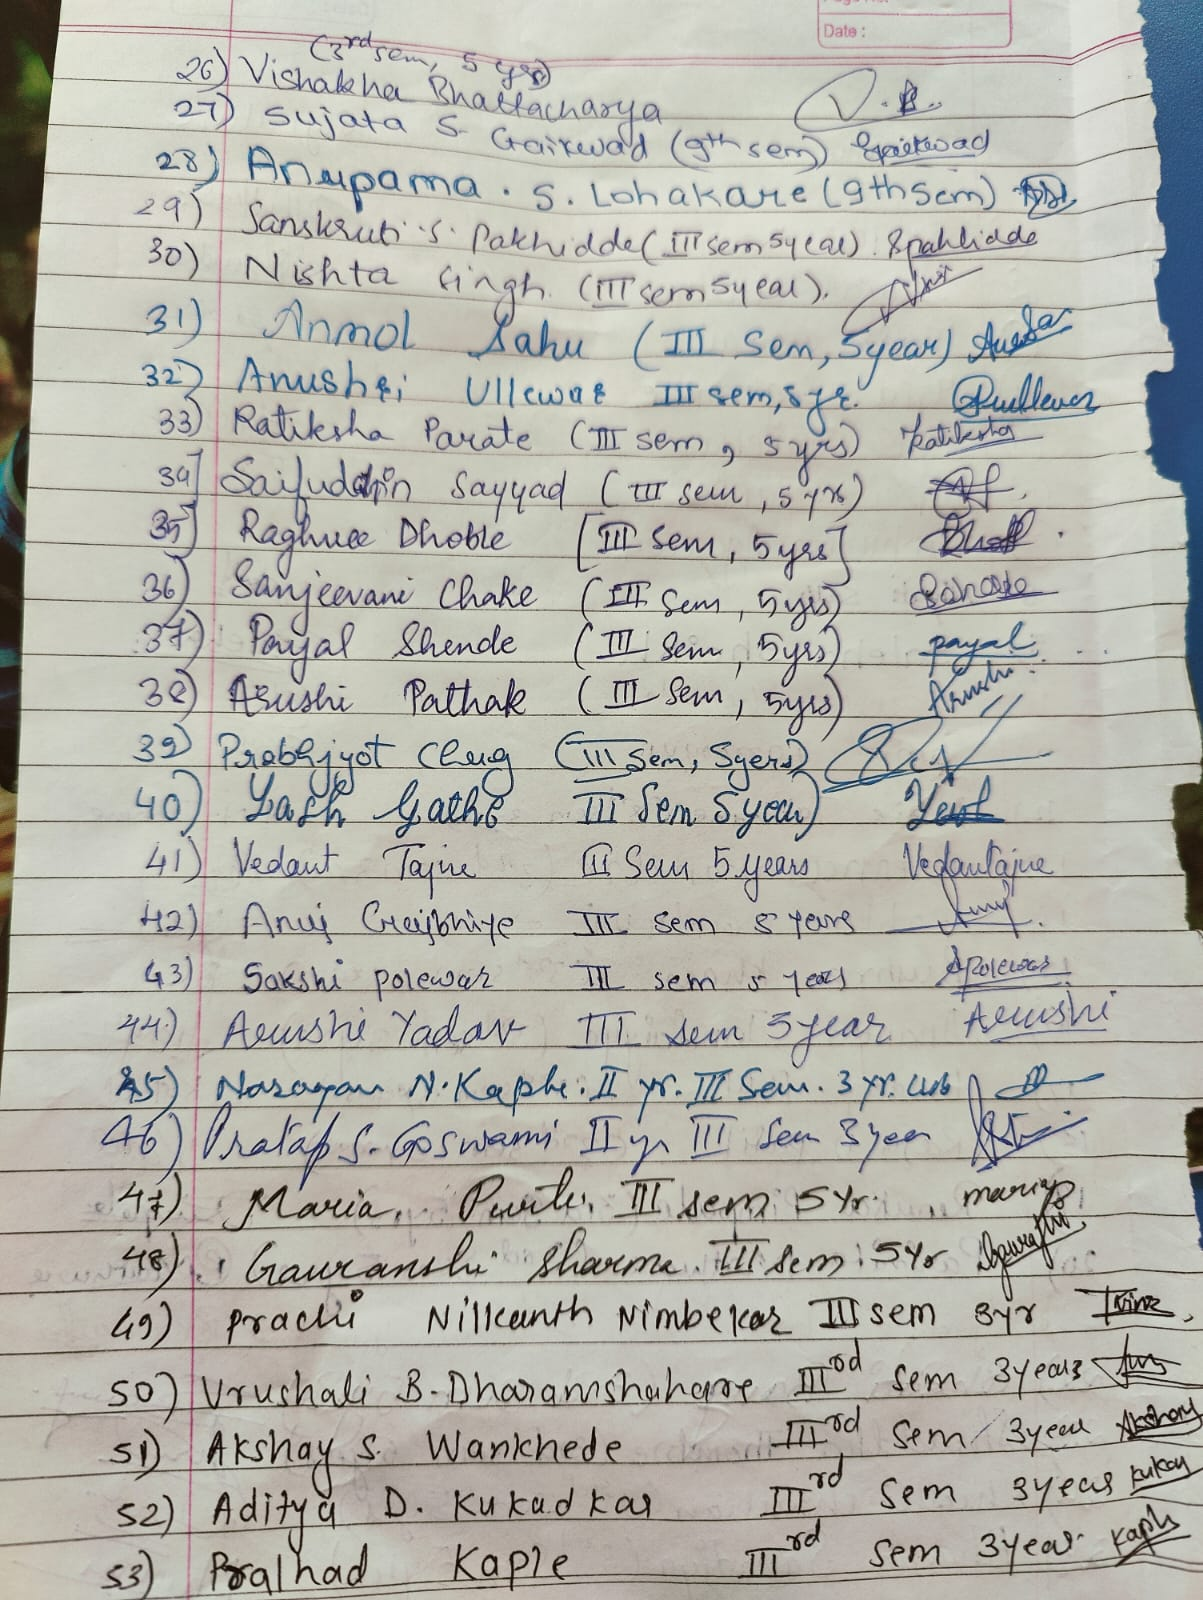 Date :
(3rd sem, 5 yrs)
26) Vishakha Bhattacharya V.B.
27) Sujata S. Gaikwad (9th sem) Gaikwad
28) Anupama . S. Lohakare (9th Sem)
29) Sanskruti . S. Pakhidde (III sem 5 year) Spakhidde
30) Nishta Singh. (III sem 5 year).
31) Anmol Sahu (III Sem, 5 year)
32) Anushri Ullewar III sem, 5 yr.
33) Ratiksha Parate (III sem, 5 yrs) Ratiksha
34] Saifuddin Sayyad (III sem, 5 yrs)
35] Raghvee Dhoble [III Sem, 5 yrs]
36) Sanjeevani Chake (III Sem, 5 yrs)
37) Payal Shende (III Sem, 5 yrs) payal
38) Arushi Pathak (III Sem, 5 yrs) Arushi
39) Prabhjyot Chug (III Sem, 5 yers)
40) Yash Gathe III Sem 5 year) Yash
41) Vedant Tajne III Sem 5 years Vedantajne
42) Anuj Gajbhiye III sem 5 years Anuj
43) Sakshi polewar III sem 5 years Spolewar
44) Arushi Yadav III sem 5 year Arushi
45) Narayan N. Kaple. II yr. III Sem. 3 yr.
46) Pratap S. Goswami II yr III Sem 3 year
47) Maria. III sem 5 Yr. maria
48) Gauranshi Sharma. III sem. 5 Yr
49) Prachi Nilkanth Nimbekar III sem 3yr
50) Vrushali B. Dharamshahare IIIrd sem 3 years
51) Akshay S. Wankhede IIIrd Sem 3 year Akshay
52) Aditya D. Kukadkar IIIrd Sem 3 years
53) Pralhad Kaple IIIrd sem 3 year. Kaple